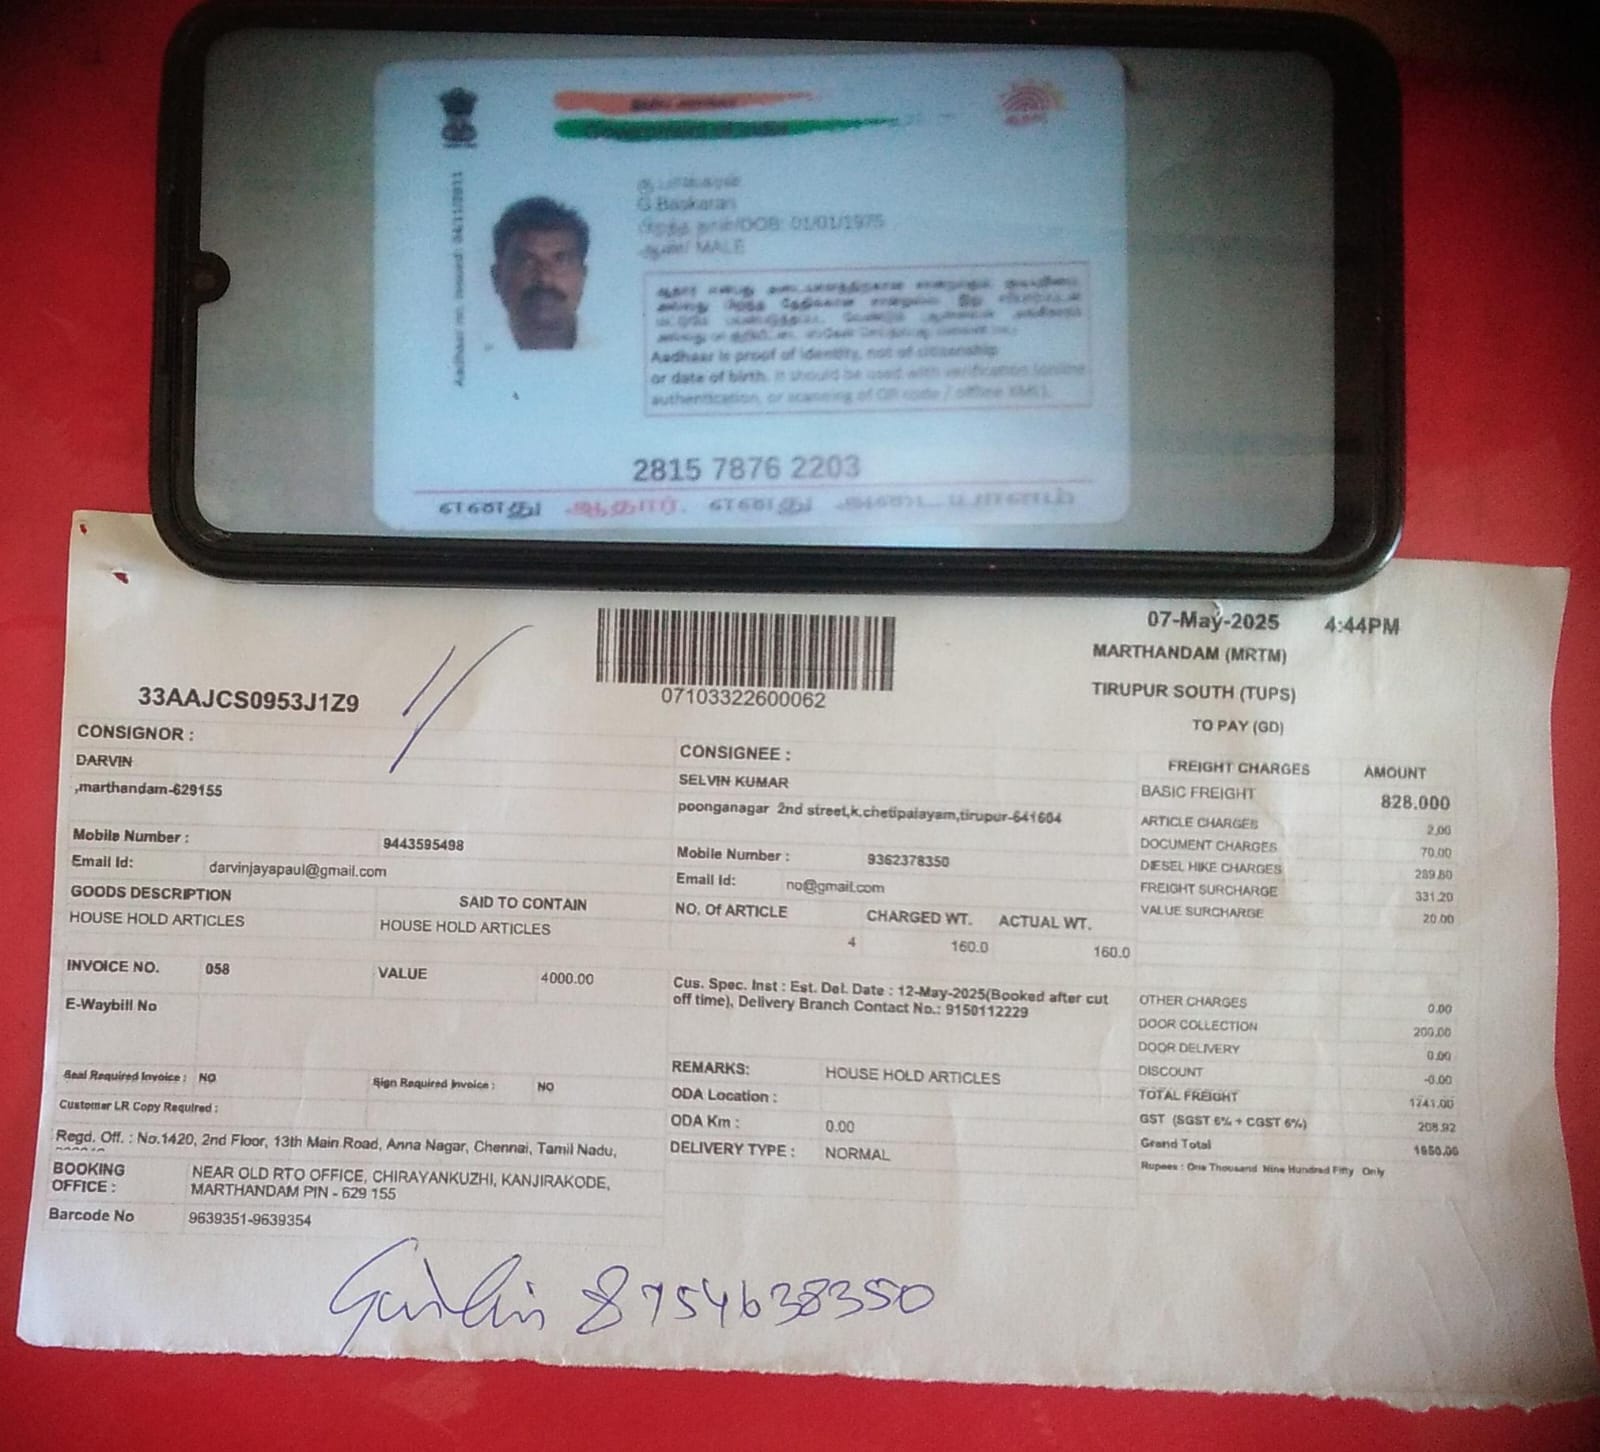 Government of India
Aadhaar no. issued: 04/11/2011
G.Baskaran
பிறந்த நாள்/DOB: 01/01/1975
ஆண்/ MALE
Aadhaar is proof of identity, not of citizenship
or date of birth. It should be used with verification (online
authentication, or scanning of QR code / offline XML).
2815 7876 2203
எனது ஆதார், எனது அடையாளம்
07-May-2025 4:44PM
MARTHANDAM (MRTM)
TIRUPUR SOUTH (TUPS)
TO PAY (GD)
33AAJCS0953J1Z9
07103322600062
CONSIGNOR :
DARVIN
,marthandam-629155
Mobile Number : 9443595498
Email Id: darvinjayapaul@gmail.com
GOODS DESCRIPTION SAID TO CONTAIN
HOUSE HOLD ARTICLES HOUSE HOLD ARTICLES
INVOICE NO. 058 VALUE 4000.00
E-Waybill No
Seal Required Invoice : NO Sign Required Invoice : NO
Customer LR Copy Required :
Regd. Off. : No.1420, 2nd Floor, 13th Main Road, Anna Nagar, Chennai, Tamil Nadu,
BOOKING NEAR OLD RTO OFFICE, CHIRAYANKUZHI, KANJIRAKODE,
OFFICE : MARTHANDAM PIN - 629 155
Barcode No 9639351-9639354
CONSIGNEE :
SELVIN KUMAR
poonganagar 2nd street,k.chetipalayam,tirupur-641604
Mobile Number : 9362378350
Email Id: no@gmail.com
NO. Of ARTICLE CHARGED WT. ACTUAL WT.
4 160.0 160.0
Cus. Spec. Inst : Est. Del. Date : 12-May-2025(Booked after cut
off time), Delivery Branch Contact No.: 9150112229
REMARKS: HOUSE HOLD ARTICLES
ODA Location :
ODA Km : 0.00
DELIVERY TYPE : NORMAL
FREIGHT CHARGES AMOUNT
BASIC FREIGHT 828.000
ARTICLE CHARGES 2.00
DOCUMENT CHARGES 70.00
DIESEL HIKE CHARGES 289.80
FREIGHT SURCHARGE 331.20
VALUE SURCHARGE 20.00
OTHER CHARGES 0.00
DOOR COLLECTION 200.00
DOOR DELIVERY 0.00
DISCOUNT -0.00
TOTAL FREIGHT 1741.00
GST (SGST 6% + CGST 6%) 208.92
Grand Total 1950.00
Rupees : One Thousand Nine Hundred Fifty Only
8754638350